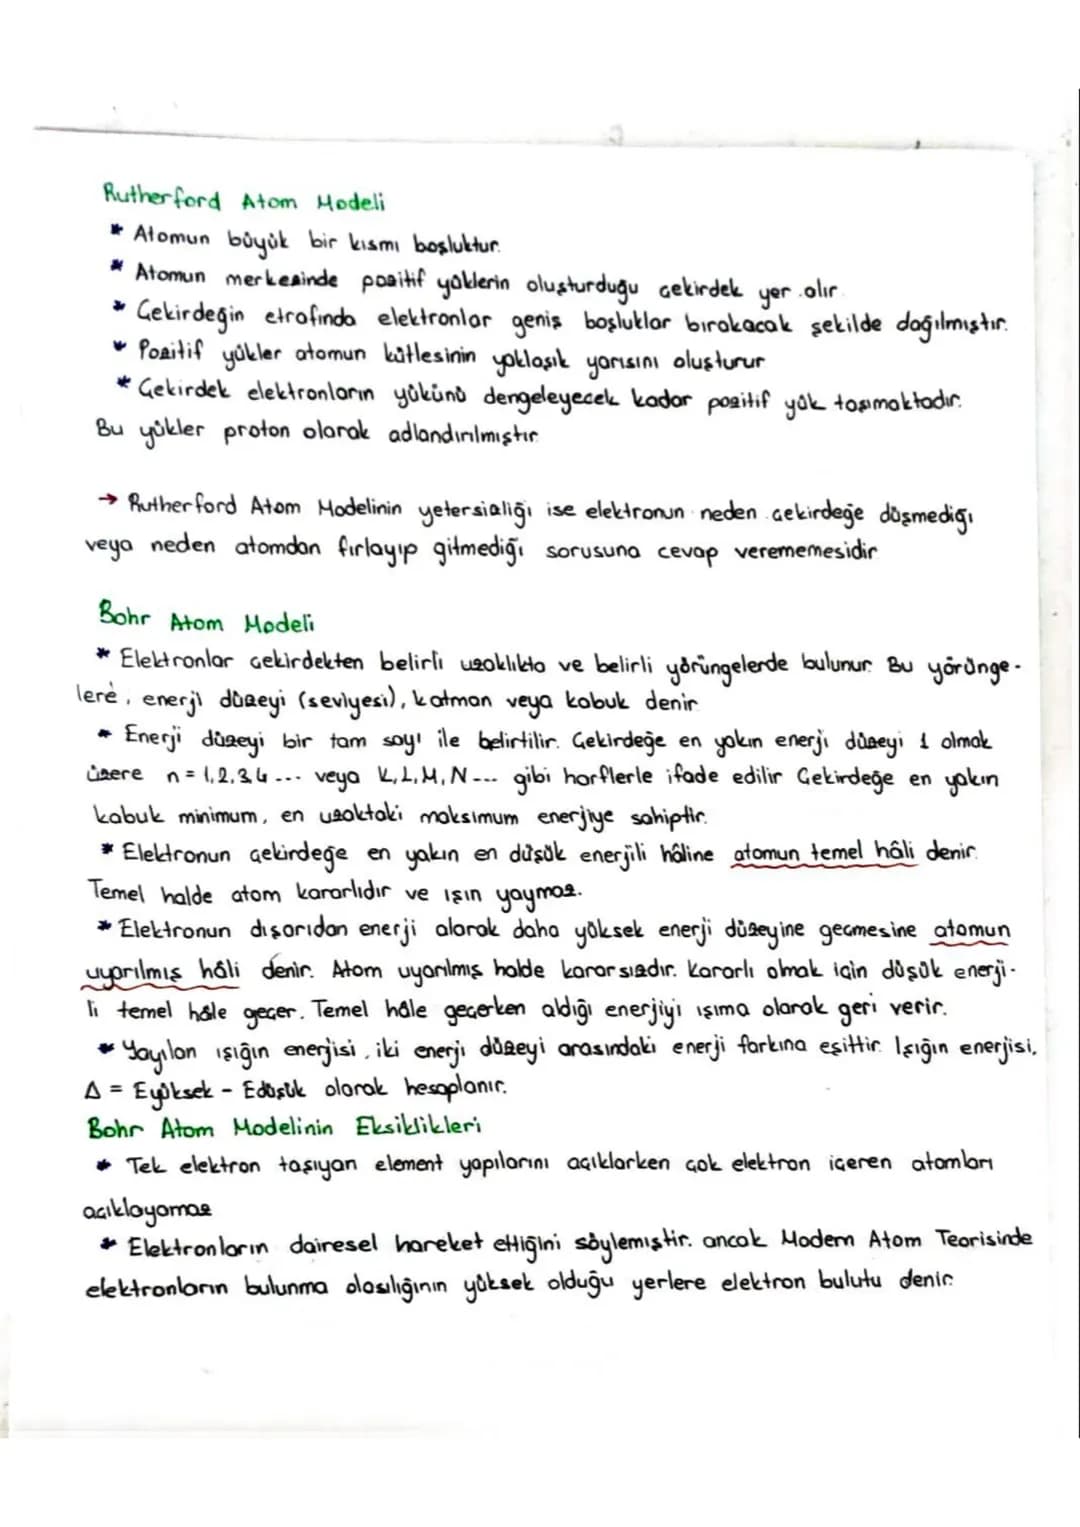 Rutherford Atom Modeli
* Atomun büyük bir kısmı boşluktur.
* Atomun merkezinde pozitif yüklerin oluşturduğu çekirdek yer alır.
* Çekirdeğin etrafında elektronlar geniş boşluklar bırakacak şekilde dağılmıştır.
* Pozitif yükler atomun kütlesinin yaklaşık yarısını oluşturur
* Çekirdek elektronların yükünü dengeleyecek kadar pozitif yük taşımaktadır.
Bu yükler proton olarak adlandırılmıştır
→ Rutherford Atom Modelinin yetersizliği ise elektronun neden çekirdeğe düşmediği
veya neden atomdan fırlayıp gitmediği sorusuna cevap verememesidir
Bohr Atom Modeli
* Elektronlar çekirdekten belirli uzaklıkta ve belirli yörüngelerde bulunur. Bu yörünge-
lere, enerji düzeyi (seviyesi), katman veya kabuk denir
* Enerji düzeyi bir tam sayı ile belirtilir. Çekirdeğe en yakın enerji düzeyi 1 olmak
üzere n = 1,2,3,4 --- veya K,L,M,N --- gibi harflerle ifade edilir Çekirdeğe en yakın
kabuk minimum, en uzaktaki maksimum enerjiye sahiptir.
* Elektronun çekirdeğe en yakın en düşük enerjili hâline atomun temel hâli denir.
Temel halde atom kararlıdır ve ışın yaymaz.
* Elektronun dışarıdan enerji alarak daha yüksek enerji düzeyine geçmesine atomun
uyarılmış hâli denir. Atom uyarılmış halde kararsızdır. Kararlı olmak için düşük enerji-
li temel hâle geçer. Temel hâle geçerken aldığı enerjiyi ışıma olarak geri verir.
* Yayılan ışığın enerjisi, iki enerji düzeyi arasındaki enerji farkına eşittir. Işığın enerjisi,
Δ = Eyüksek - Edüşük olarak hesaplanır.
Bohr Atom Modelinin Eksiklikleri
* Tek elektron taşıyan element yapılarını açıklarken çok elektron içeren atomları
açıklayamaz
* Elektronların dairesel hareket ettiğini söylemiştir. ancak Modern Atom Teorisinde
elektronların bulunma olasılığının yüksek olduğu yerlere elektron bulutu denir.